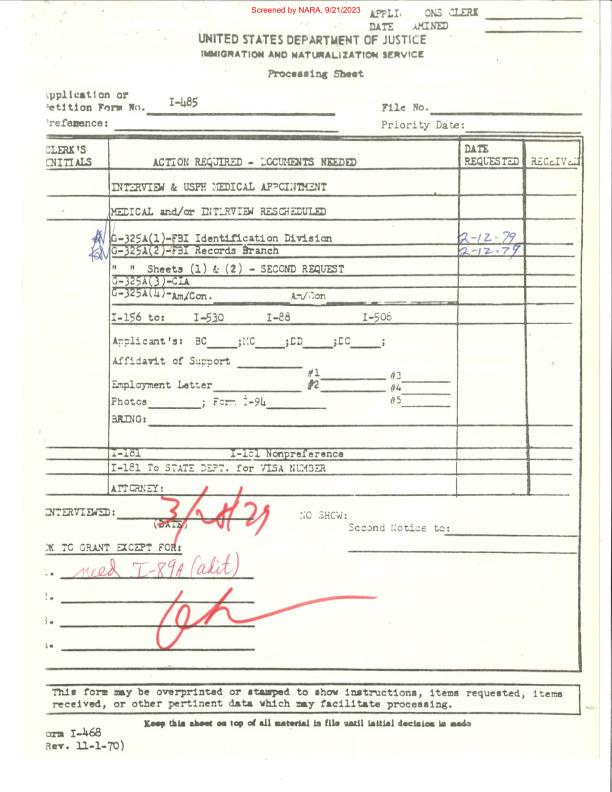 Screened by NARA, 9/21/2023
APPLI ONS CLERK
DATE AMINED
UNITED STATES DEPARTMENT OF JUSTICE
IMMIGRATION AND NATURALIZATION SERVICE
Processing Sheet
pplication or
etition Form No. I-485 File No.
reference: Priority Date:
CLERK'S INITIALS ACTION REQUIRED - DOCUMENTS NEEDED DATE REQUESTED RECEIVED
INTERVIEW & USPH MEDICAL APPOINTMENT
MEDICAL and/or INTERVIEW RESCHEDULED
G-325A(1)-FBI Identification Division 2-12-79
G-325A(2)-FBI Records Branch 2-12-79
" " Sheets (1) & (2) - SECOND REQUEST
G-325A(3)-CIA
G-325A(4)-Am/Con. Am/Con
I-156 to: I-530 I-88 I-508
Applicant's: BC ;MC ;DD ;DC ;
Affidavit of Support
#1 #3
Employment Letter #2 #4
Photos ; Form I-94 #5
BRING:
I-181 I-181 Nonpreference
I-181 To STATE DEPT. for VISA NUMBER
ATTORNEY:
INTERVIEWED: 3/28/79 NO SHOW:
(DATE) Second Notice to:
OK TO GRANT EXCEPT FOR:
1. need I-89A (adit)
2.
3.
4.
This form may be overprinted or stamped to show instructions, items requested, items
received, or other pertinent data which may facilitate processing.
Keep this sheet on top of all material in file until initial decision is made
orm I-468
Rev. 11-1-70)